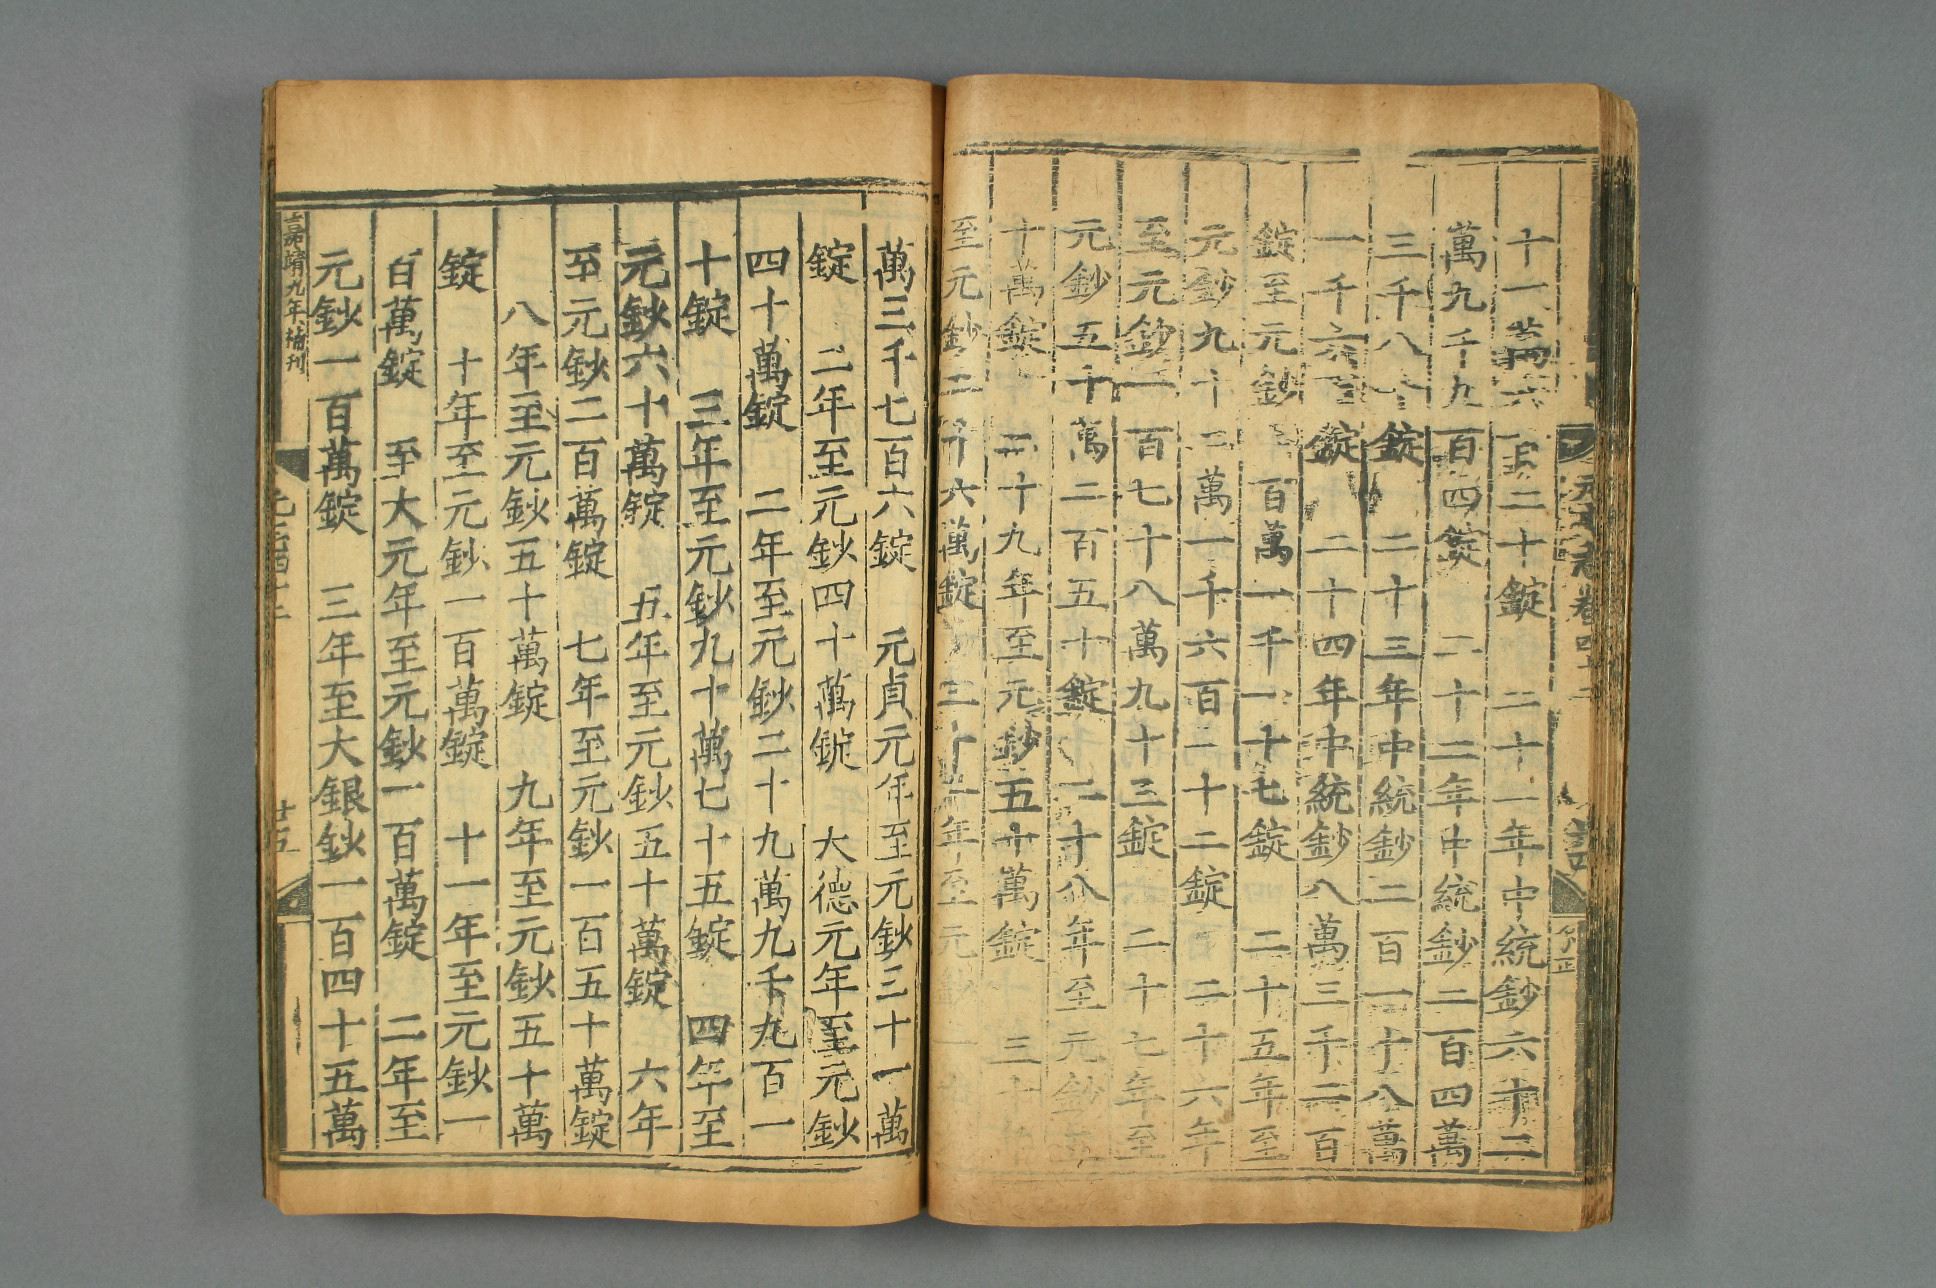 十一萬六百二十錠　二十一年中統鈔六十二
萬九千九百四錠　二十二年中統鈔二百四萬
三千八 錠　二十三年中統鈔二百一十八萬
一千六百錠　二十四年中統鈔八萬三千二百
錠至元鈔一百萬一千一十七錠　二十五年至
元鈔九十二萬一千六百一十二錠　二十六年
至元鈔一百七十八萬九十三錠　二十七年至
元鈔五十萬二百五十錠　二十八年至元鈔五
十萬錠　二十九年至元鈔五十萬錠　三十年
至元鈔二十六萬錠　三十一年至元鈔一十九
萬三千七百六錠　元貞元年至元鈔三十一萬
錠　二年至元鈔四十萬錠　大德元年至元鈔
四十萬錠　二年至元鈔二十九萬九千九百一
十錠　三年至元鈔九十萬七十五錠　四年至
元鈔六十萬錠　五年至元鈔五十萬錠　六年
至元鈔二百萬錠　七年至元鈔一百五十萬錠
八年至元鈔五十萬錠　九年至元鈔五十萬
錠　十年至元鈔一百萬錠　十一年至元鈔一
百萬錠　至大元年至元鈔一百萬錠　二年至
元鈔一百萬錠　三年至大銀鈔一百四十五萬
嘉靖九年補刊
廿五